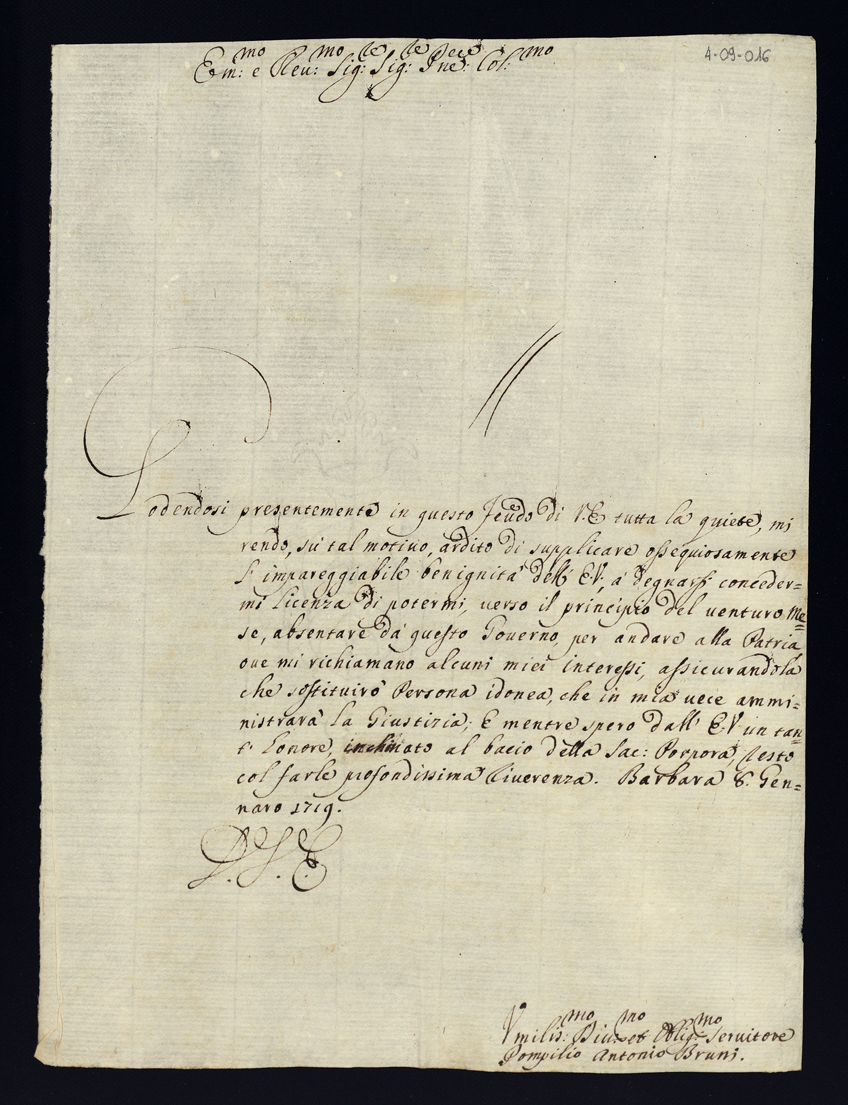 4-09-016
Em:mo e Reu:mo Sig:re Sig:re Pne: Col:mo
Godendosi presentemente in questo Feudo di V.E tutta la quiete, mi
rendo, sù tal motiuo, ardito di supplicare ossequiosamente
l' impareggiabile benignità dell' E.V, à degnarsi conceder=
mi licenza di potermi, uerso il principio del uenturo Me=
se, absentare dà questo Gouerno, per andare alla Patria
oue mi richiamano alcuni miei interessi, assicurandola
che sostituirò Persona idonea, che in mia uece ammi=
nistrarà la Giustizia; E mentre spero dall' E.V un tan=
t' honore, inchinato al bacio della Sac: Porpora, resto
col farle profondissima riuerenza. Barbara 8. Gen=
naro 1719.
D. V. E.
Vmilis:mo Diu:mo et Oblig:mo Seruitore
Pompilio Antonio Bruni.